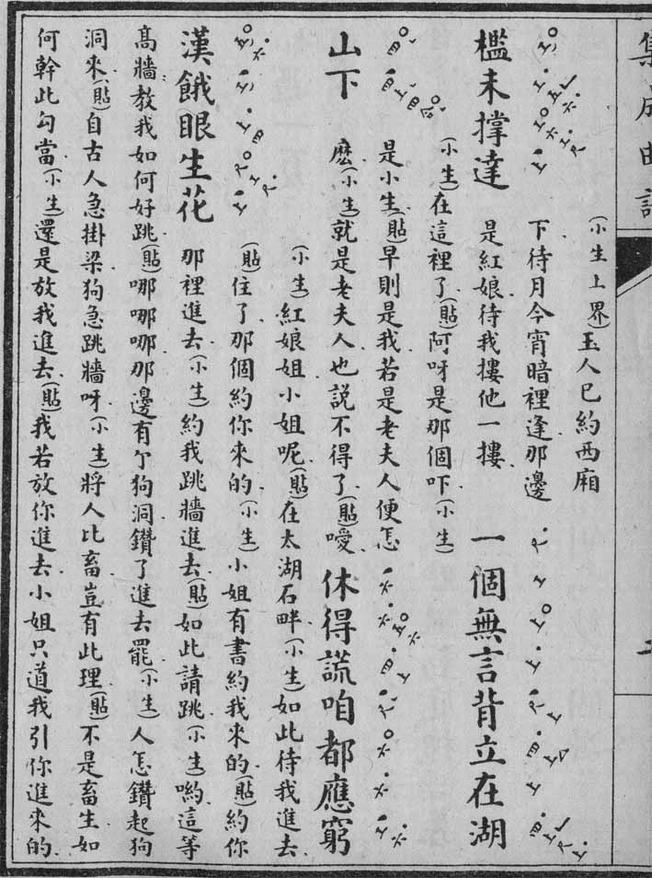 集成曲譜
(小生上界)玉人已約西廂
下待月今宵暗裡逢那邊
檻未撑達 是紅娘待我摟他一摟 一個無言背立在湖
(小生)在這裡了(貼)阿呀是那個吓(小生)
是小生(貼)早則是我若是老夫人便怎
山下 麽(小生)就是老夫人也説不得了(貼)噯 休得謊咱都應窮
(小生)紅娘姐小姐呢(貼)在太湖石畔(小生)如此待我進去
(貼)住了那個約你來的(小生)小姐有書約我來的(貼)約你
漢餓眼生花 那裡進去(小生)約我跳牆進去(貼)如此請跳(小生)喲這等
高牆教我如何好跳(貼)哪哪哪那邊有个狗洞鑽了進去罷(小生)人怎鑽起狗
洞來(貼)自古人急掛梁狗急跳牆呀(小生)將人比畜豈有此理(貼)不是畜生如
何幹此勾當(小生)還是放我進去(貼)我若放你進去小姐只道我引你進來的